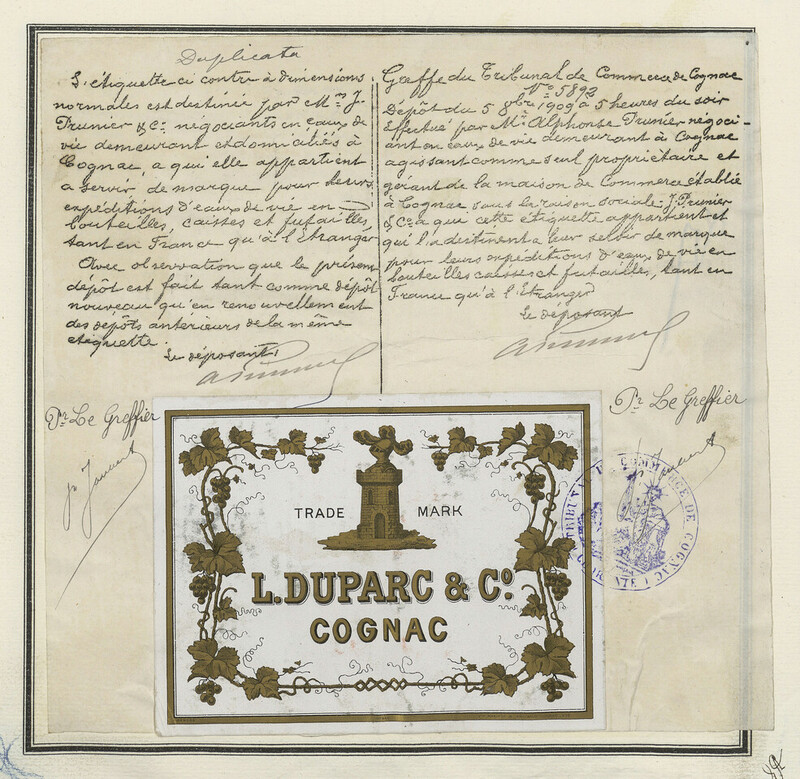 Duplicata
L'étiquette ci contre à dimensions
normales est destinée par Mrs J.
Prunier & Cie négociants en eaux de
vie demeurant et domiciliés à
Cognac, a qui elle appartient
a servir de marque pour leurs
expéditions d'eaux de vie en
bouteilles, caisses et futailles,
tant en France qu'à l'Etranger
Avec observation que le présent
dépôt est fait tant comme dépôt
nouveau qu'en renouvellement
des dépôts antérieurs de la même
etiquette.
Le déposant:
APrunier
Pr Le Greffier
Greffe du Tribunal de Commerce de Cognac
No 5892
Dépôt du 5 8bre 1909 à 5 heures du soir
Effectué par Mr Alphonse Prunier négoci-
ant en eaux de vie demeurant à Cognac
agissant comme seul propriétaire et
gérant de la maison de Commerce établie
à Cognac sous la raison sociale J. Prunier
& Cie a qui cette etiquette appartient et
qui l'a destinent a leur servir de marque
pour leurs expéditions d'eaux de vie en
bouteilles caisses et futailles, tant en
France qu'à l'Etranger
Le déposant
APrunier
Pr Le Greffier
TRADE MARK
L. DUPARC & Co.
COGNAC
TRIBUNAL DE COMMERCE DE COGNAC